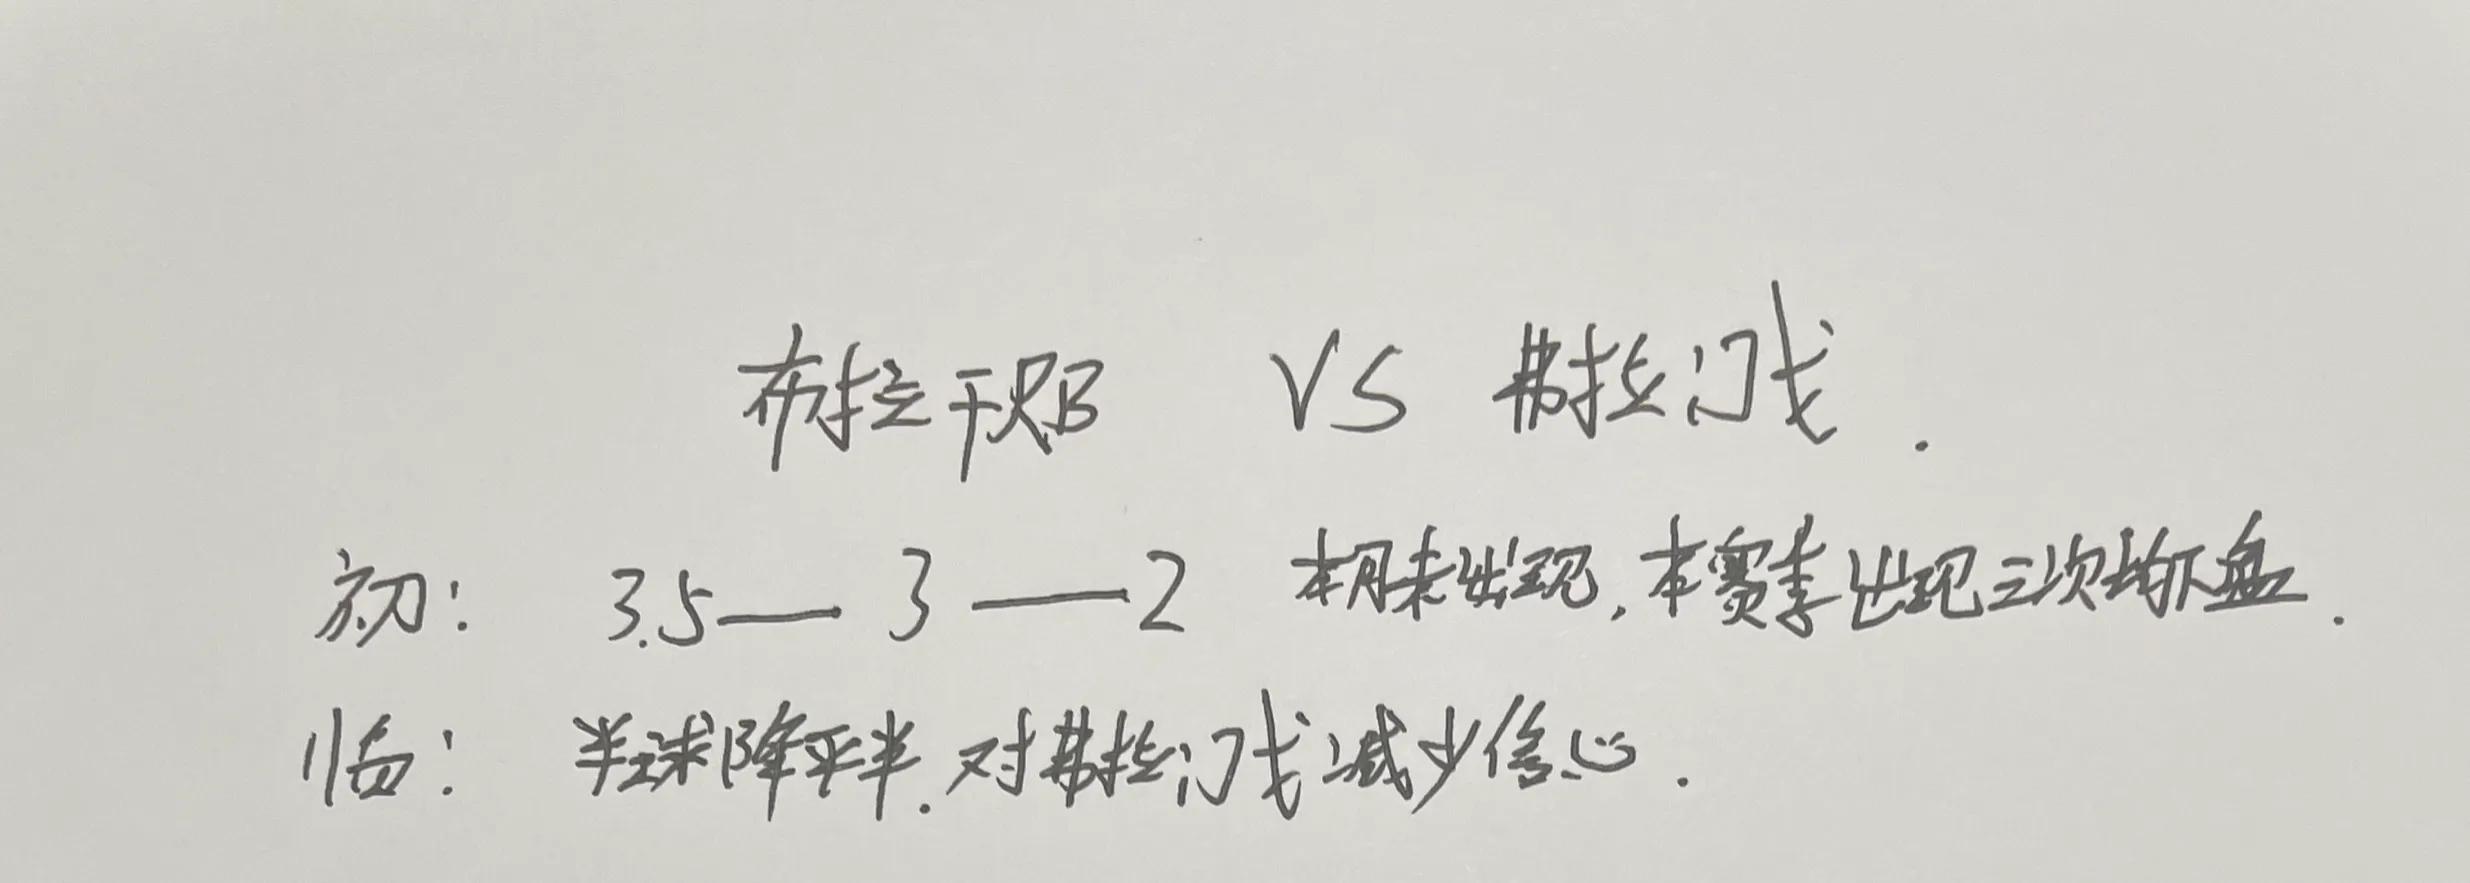 布拉干RB VS 弗拉门戈.
初: 3.5—3—2 本月未出现,本赛季出现三次均下盘.
临: 半球降平半.对弗拉门戈减少信心.